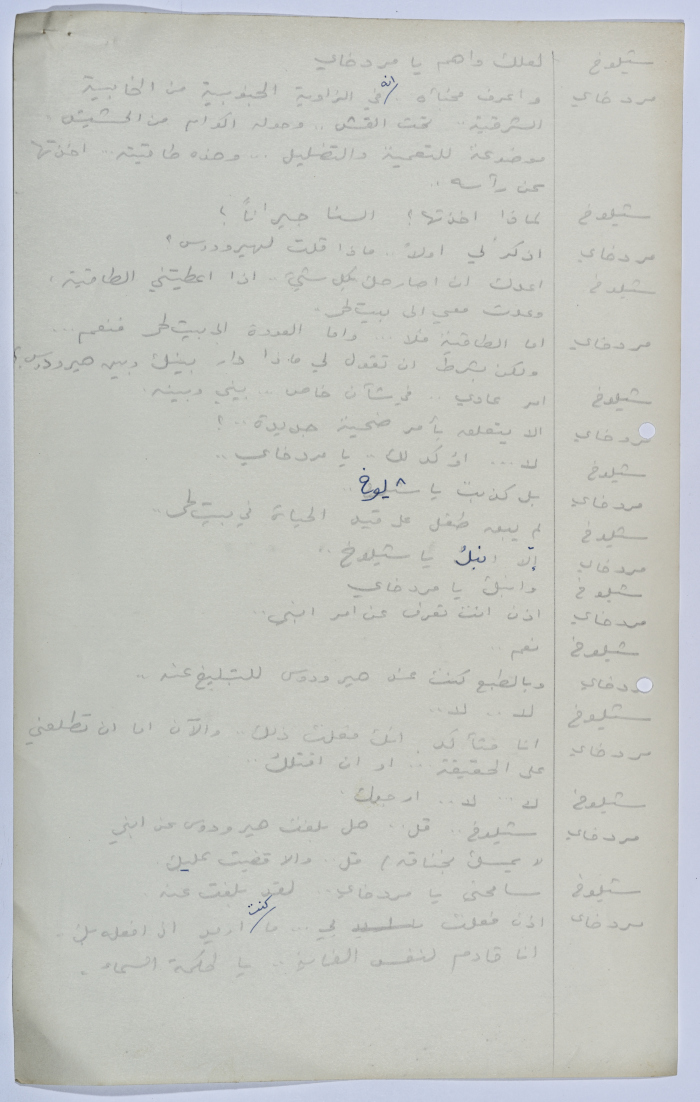 شيلوخ لعلك واهم يا مردخاي
مردخاي واعرف مخبأه.. انه في الزاوية الجنوبية من الخابية
الشرقية.. تحت القش.. وحوله اكوام من الحشيش
موضوعة للتعمية والتضليل... وهذه طاقيته... اخذتها
عن رأسه.
شيلوخ لماذا اخذتها؟ السنا جيراناً؟
مردخاي اذكر لي اولاً.. ماذا قلت لهيرودوس؟
شيلوخ اعدك ان اصارحك بكل شيء.. اذا اعطيتني الطاقية،
وعدت معي الى بيت لحم.
مردخاي اما الطاقية فلا... واما العودة الى بيت لحم فنعم...
ولكن بشرط ان تقول لي ماذا دار بينك وبين هيرودوس؟
شيلوخ امر عادي.. في شأن خاص.. بيني وبينه.
مردخاي الا يتعلق بأمر ضحية جديدة..؟
شيلوخ لا... اؤكد لك.. يا مردخاي..
مردخاي بل كذبت يا شيلوخ
شيلوخ لم يبق طفل على قيد الحياة في بيت لحم..
مردخاي إلّا ابنك يا شيلوخ..
شيلوخ وابنك يا مردخاي
مردخاي اذن انت تعرف عن امر ابني..
شيلوخ نعم..
مردخاي وبالطبع كنت عند هيرودوس للتبليغ عنه..
شيلوخ لا.. لا..
مردخاي انا متأكد انك فعلت ذلك.. والآن اما ان تطلعني
على الحقيقة... او ان اقتلك..
شيلوخ لا... لا.. ارجوك.
مردخاي شيلوخ.. قل.. هل بلغت هيرودوس عن ابني
/يمسك بخناقه/ قل.. والا قضيت عليك.
شيلوخ سامحني يا مردخاي.. لقد بلغت عنه.
مردخاي اذن فعلت بي... ما كنت اريد ان افعله بك..
انا قادم لنفس الغاية.. يا لحكمة السماء.